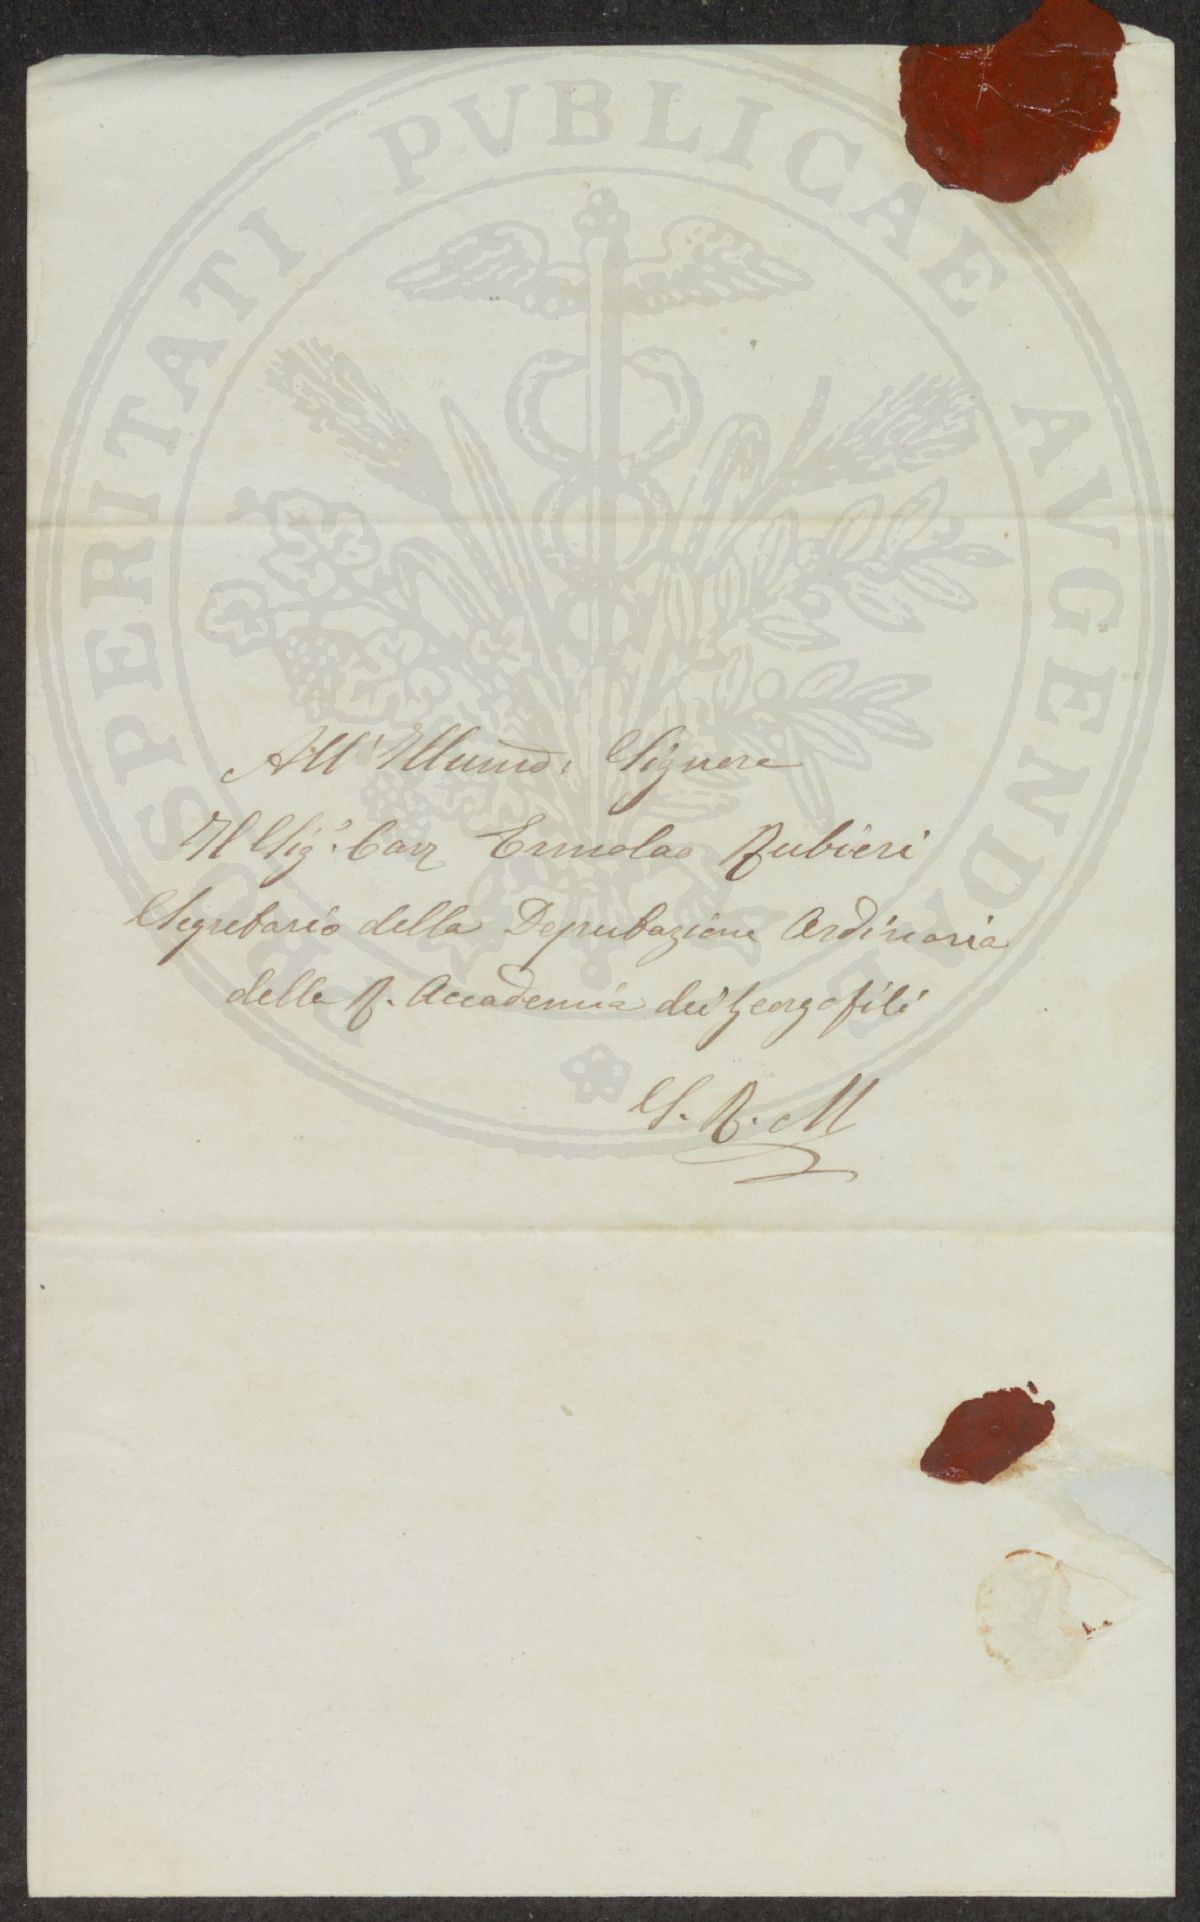 PROSPERITATI PVBLICAE AVGENDAE
All'Illumo: Signore
Il Sigr. Cav Ermolao Rubieri
Segretario della Deputazione Ordinaria
della R. Accademia dei Georgofili
S. R. M